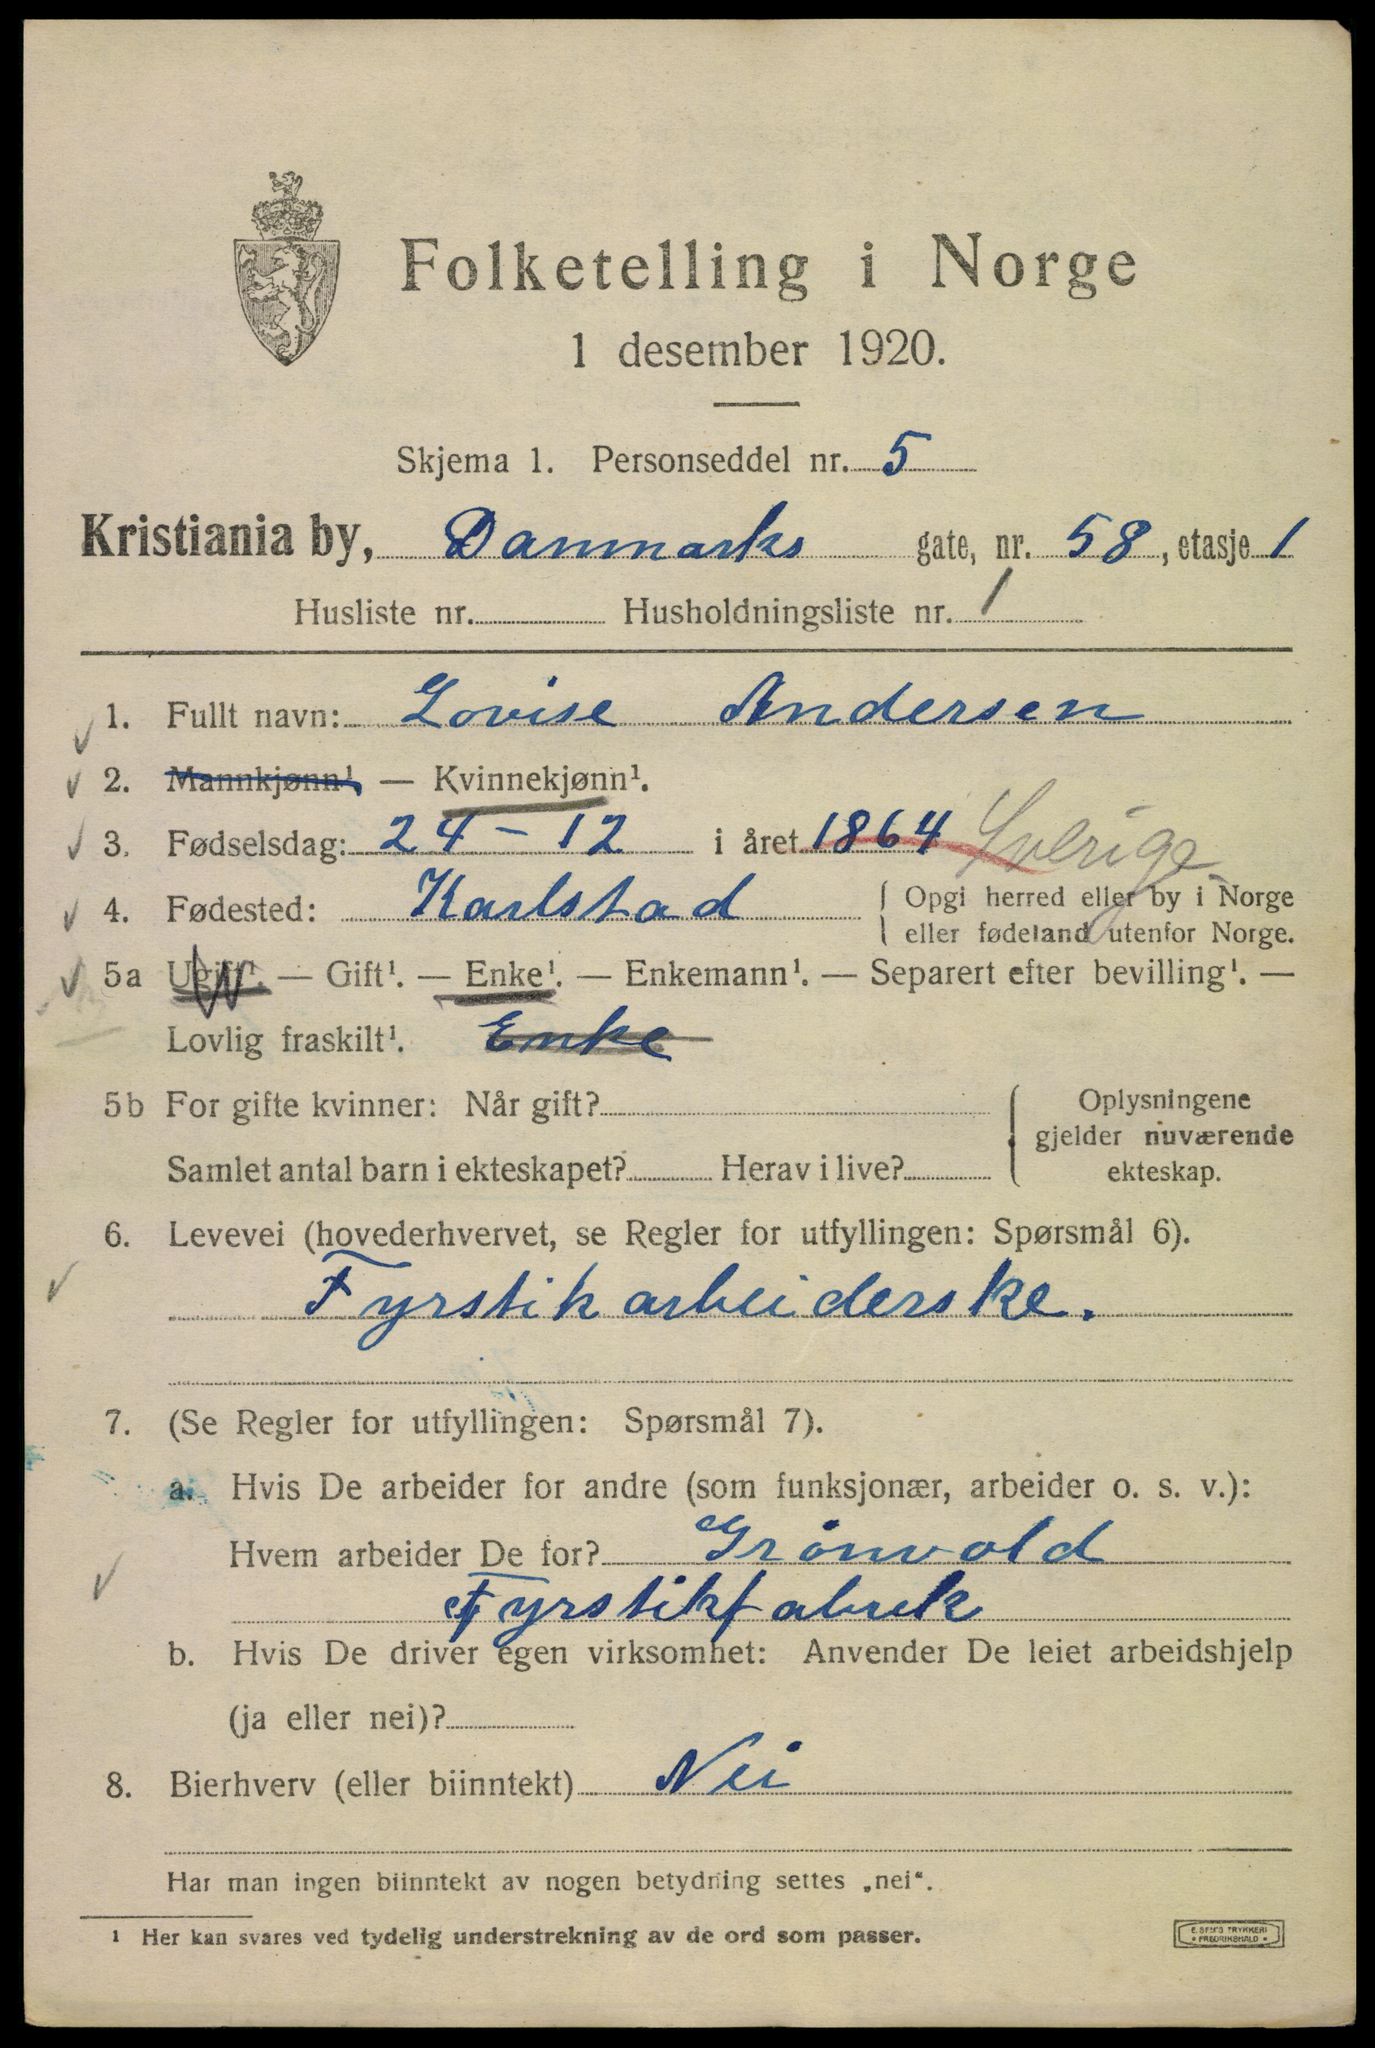 Folketelling i Norge
1 desember 1920.
Skjema 1. Personseddel nr. 5
Kristiania by, Danmarks gate, nr. 58, etasje 1
Husliste nr. Husholdningsliste nr. 1
1. Fullt navn: Lovise Andersen
2. Mannkjønn¹. — Kvinnekjønn¹.
3. Fødselsdag: 24 – 12 i året 1864 Sverige
4. Fødested: Karlstad { Opgi herred eller by i Norge
eller fødeland utenfor Norge.
5a Ugift¹. — Gift¹. — Enke¹. — Enkemann¹. — Separert efter bevilling¹. —
Lovlig fraskilt¹. Enke
5b For gifte kvinner: Når gift? { Oplysningene
gjelder nuværende
Samlet antal barn i ekteskapet? Herav i live? ekteskap.
6. Levevei (hovederhvervet, se Regler for utfyllingen: Spørsmål 6).
Fyrstikarbeiderske.
7. (Se Regler for utfyllingen: Spørsmål 7).
a. Hvis De arbeider for andre (som funksjonær, arbeider o. s. v.):
Hvem arbeider De for? Grönvold
Fyrstikfabrik
b. Hvis De driver egen virksomhet: Anvender De leiet arbeidshjelp
(ja eller nei)?
8. Bierhverv (eller biinntekt) Nei
Har man ingen biinntekt av nogen betydning settes „nei“.
¹ Her kan svares ved tydelig understrekning av de ord som passer.
E. SEM'S TRYKKERI
• FREDRIKSHALD •